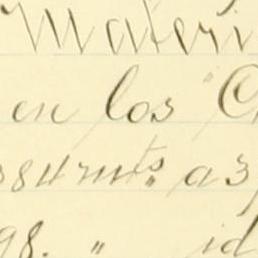 Materi
en los "C
assumts, as
98. " id